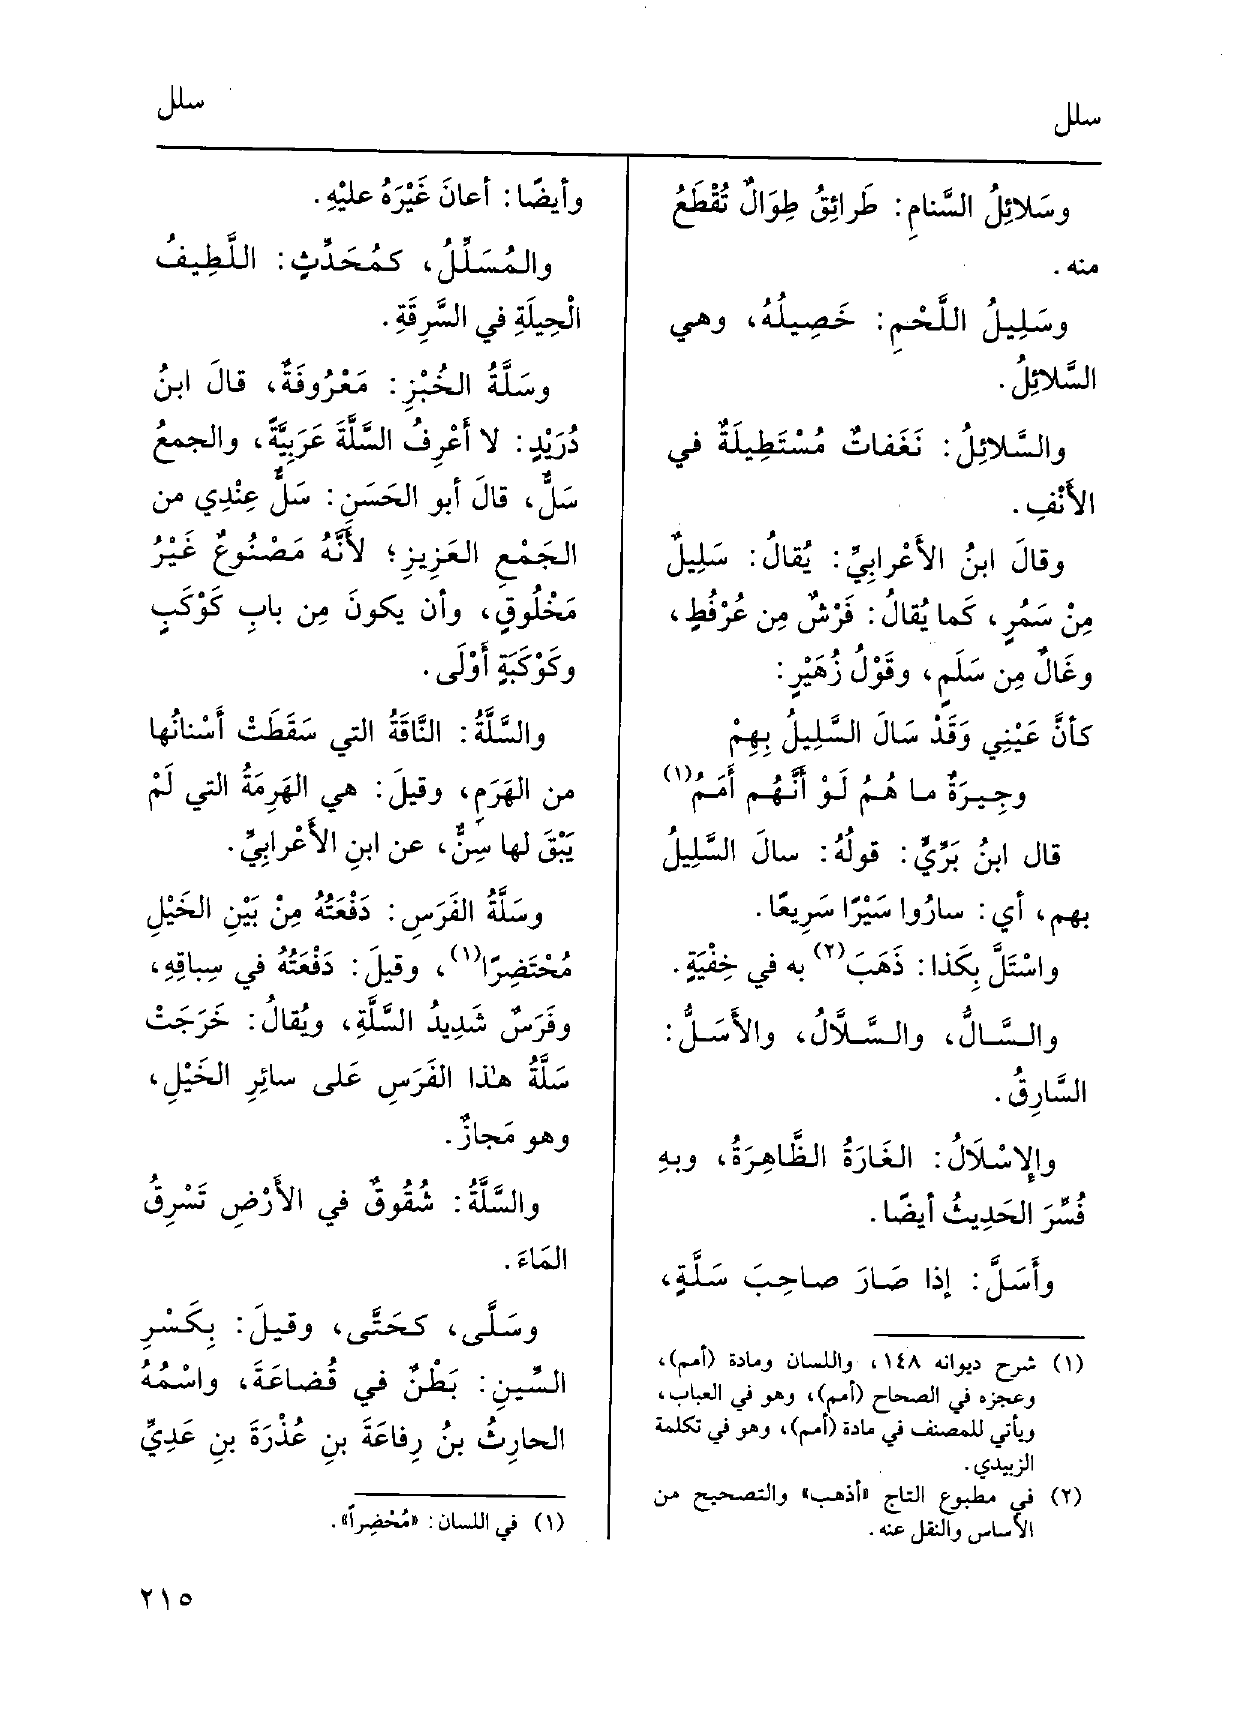 سلل
سلل
وسَلائِلُ السَّنامِ: طَرائِقُ طِوَالٌ تُقْطَعُ
منه.
وسَلِيلُ اللَّحْمِ: خَصِيلُهُ، وهي
السَّلائِلُ.
والسَّلائِلُ: نَغَفاتٌ مُسْتَطِيلَةٌ في
الأَنْفِ.
وقالَ ابنُ الأَعْرابِيِّ: يُقالُ: سَلِيلٌ
مِنْ سَمُرٍ، كَما يُقالُ: فَرْشٌ مِن عُرْفُطٍ،
وغَالٌ مِن سَلَمٍ، وقَوْلُ زُهَيْرٍ:
كأنَّ عَيْنِي وَقَدْ سَالَ السَّلِيلُ بِهِمْ
وجِيرَةٌ ما هُمُ لَوْ أَنَّهُم أَمَمُ(١)
قال ابنُ بَرِّيٍّ: قولُهُ: سالَ السَّلِيلُ
بهم، أي: سارُوا سَيْرًا سَرِيعًا.
واسْتَلَّ بِكَذا: ذَهَبَ(٢) به في خِفْيَةٍ.
والسَّالُّ، والسَّلَّالُ، والأَسَلُّ:
السَّارِقُ.
والإِسْلَالُ: الغَارَةُ الظَّاهِرَةُ، وبِهِ
فُسِّرَ الحَدِيثُ أيضًا.
وأَسَلَّ: إذا صَارَ صاحِبَ سَلَّةٍ،
(١) شرح ديوانه ١٤٨، واللسان ومادة (أمم)،
وعجزه في الصحاح (أمم)، وهو في العباب،
ويأتي للمصنف في مادة (أمم)، وهو في تكلمة
الزبيدي.
(٢) في مطبوع التاج «أذهب» والتصحيح من
الأساس والنقل عنه.
وأيضًا: أعانَ غَيْرَهُ عليْهِ.
والمُسَلِّلُ، كمُحَدِّثٍ: اللَّطِيفُ
الْحِيلَةِ في السَّرِقَةِ.
وسَلَّةُ الخُبْزِ: مَعْرُوفَةٌ، قالَ ابنُ
دُرَيْدٍ: لا أَعْرِفُ السَّلَّةَ عَرَبِيَّةً، والجمعُ
سَلٌّ، قالَ أبو الحَسَنِ: سَلٌّ عِنْدِي من
الجَمْعِ العَزِيزِ؛ لأَنَّهُ مَصْنُوعٌ غَيْرُ
مَخْلُوقٍ، وأن يكونَ مِن بابِ كَوْكَبٍ
وكَوْكَبَةٍ أَوْلَى.
والسَّلَّةُ: النَّاقَةُ التي سَقَطَتْ أَسْنانُها
من الهَرَمِ، وقيلَ: هي الهَرِمَةُ التي لَمْ
يَبْقَ لها سِنٌّ، عن ابنِ الأَعْرابِيِّ.
وسَلَّةُ الفَرَسِ: دَفْعَتُهُ مِنْ بَيْنِ الخَيْلِ
مُحْتَضِرًا(١)، وقيلَ: دَفْعَتُهُ في سِباقِهِ،
وفَرَسٌ شَدِيدُ السَّلَّةِ، ويُقالُ: خَرَجَتْ
سَلَّةُ هٰذا الفَرَسِ عَلى سائِرِ الخَيْلِ،
وهو مَجازٌ.
والسَّلَّةُ: شُقُوقٌ في الأَرْضِ تَسْرِقُ
المَاءَ.
وسَلَّى، كحَتَّى، وقيلَ: بِكَسْرِ
السِّينِ: بَطْنٌ في قُضاعَةَ، واسْمُهُ
الحارِثُ بنُ رِفاعَةَ بنِ عُذْرَةَ بنِ عَدِيِّ
(١) في اللسان: «مُحْضِراً».
٢١٥